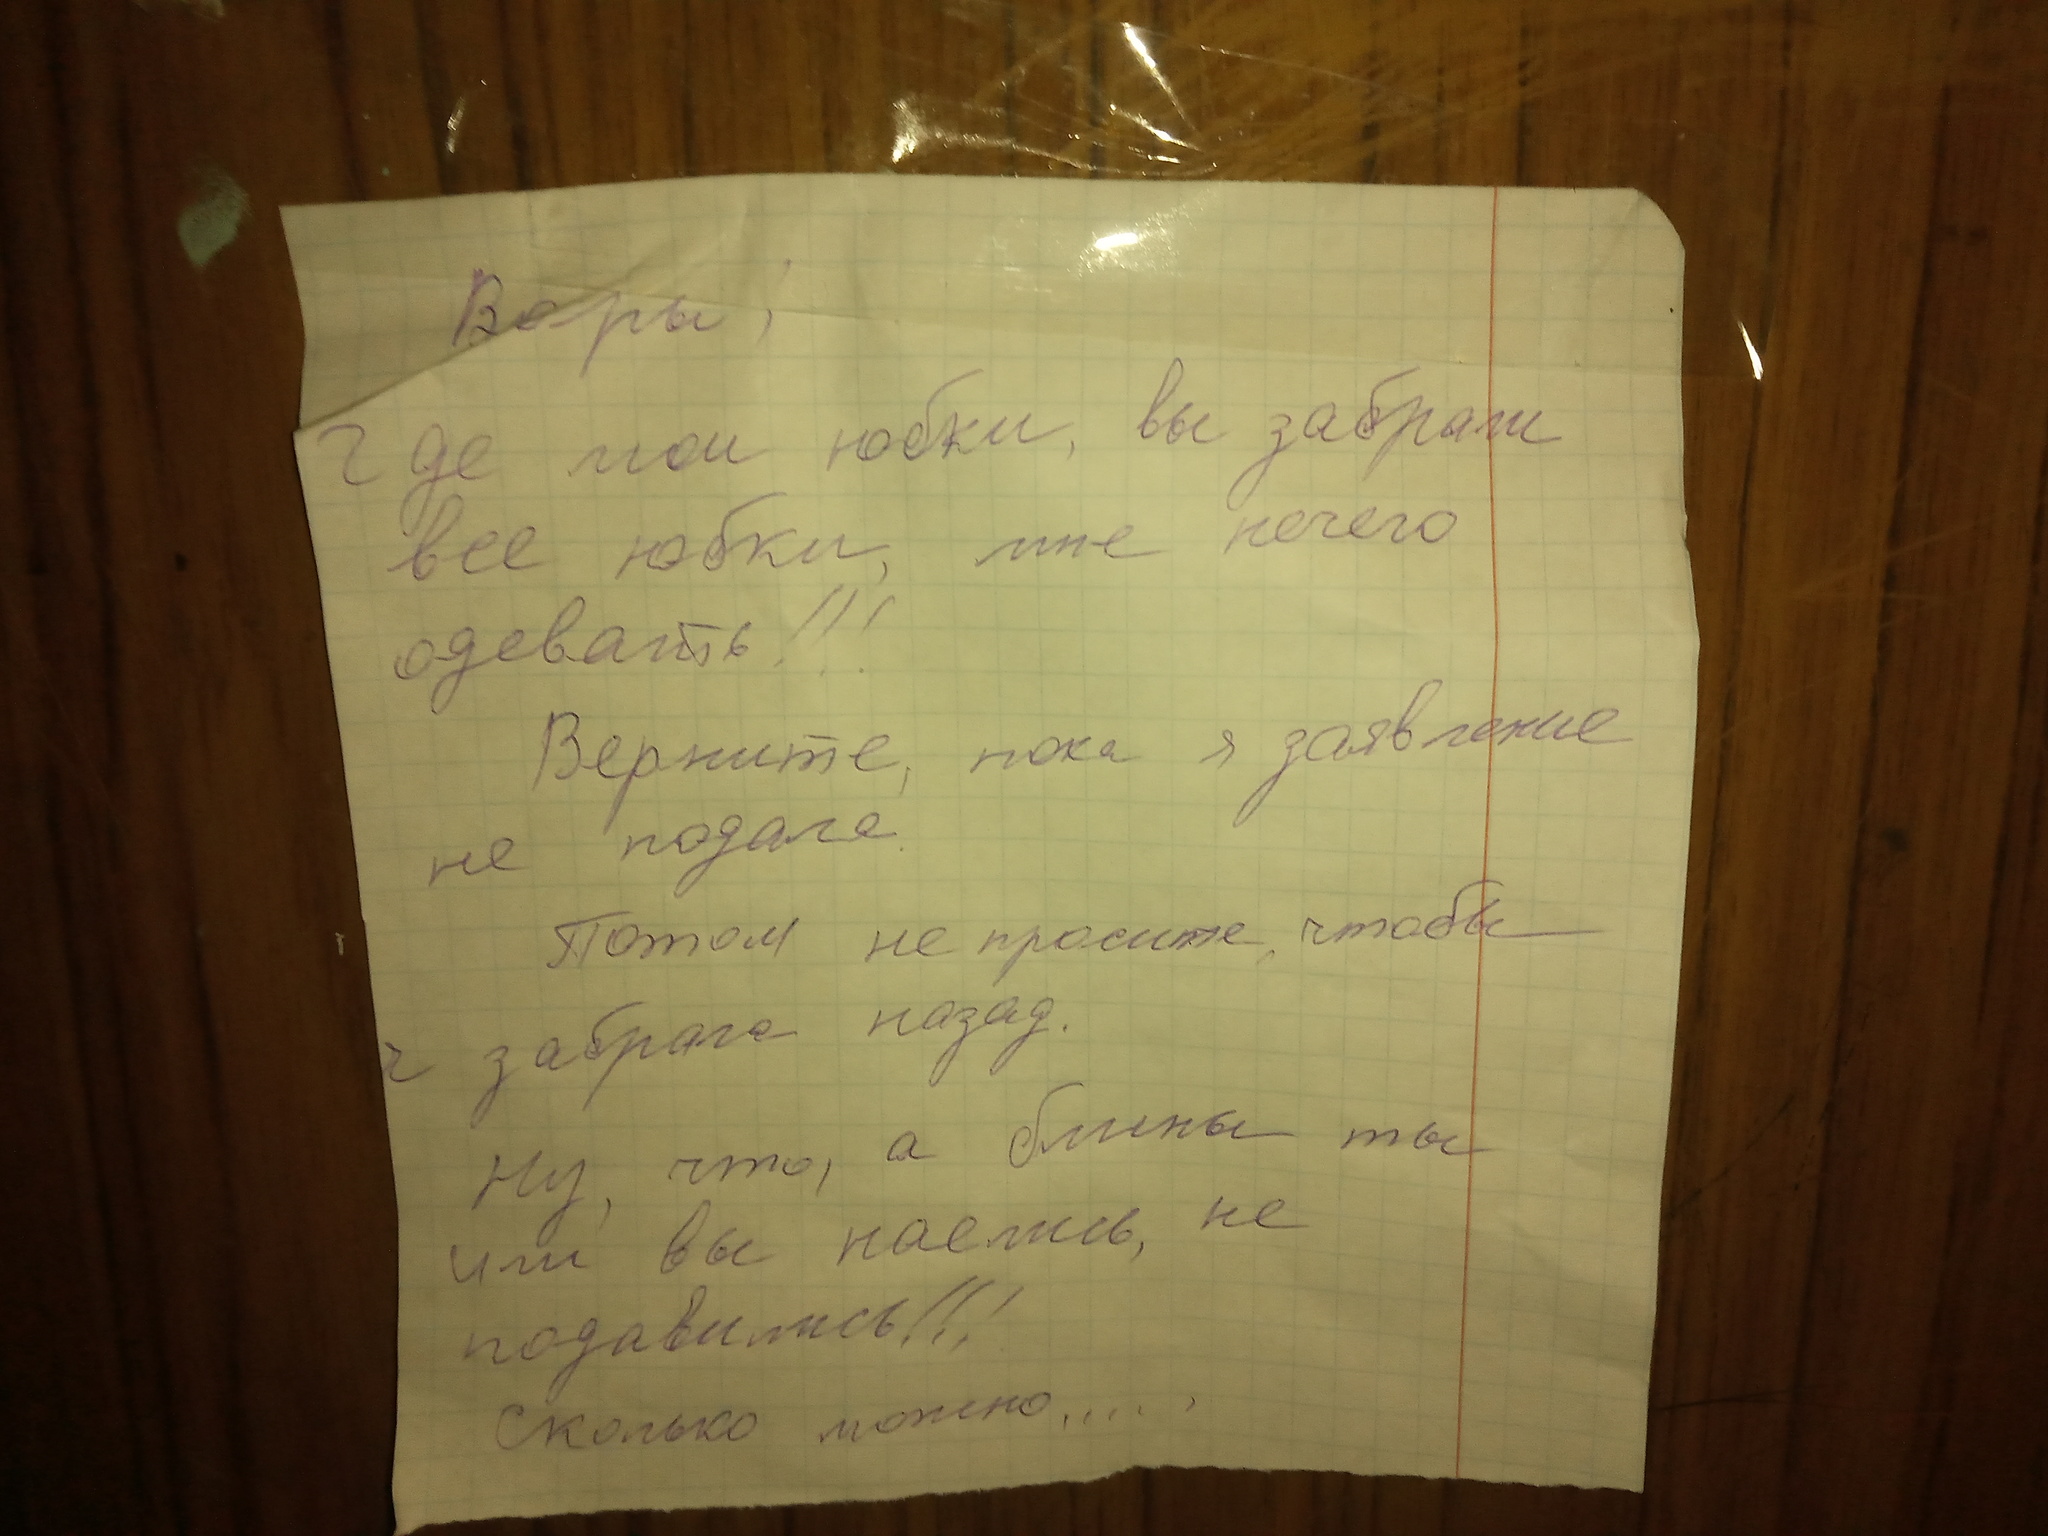 Воры,
Где мои юбки, вы забрали
все юбки, мне нечего
одевать!!!
Верните, пока я заявление
не подала.
Потом не просите, чтобы
забрала назад.
Ну, что, а блины ты
или вы наелись, не
подавились!!!
Сколько можно.....